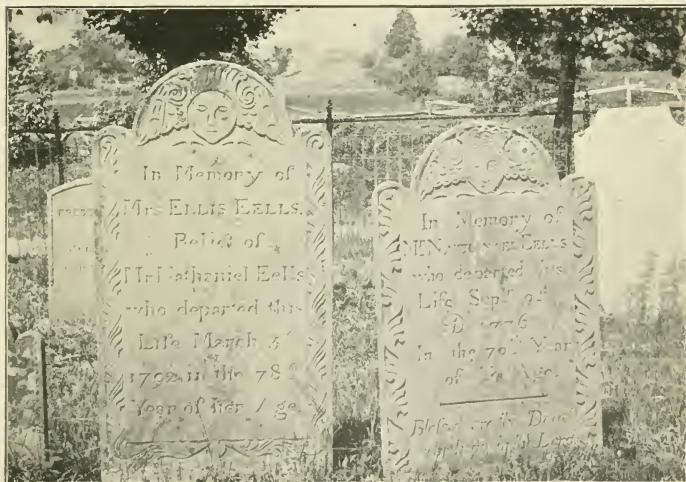 In Memory of
Mrs ELLIS EELLS.
Relict of
Mr Nathaniel Eells
who departed this
Life March
1792 in the 78th
Year of her Age
In Memory of
Mr NATHANIEL EELLS
who departed this
Life Sept 9th
AD 1776
In the 70th Year
of his Age
Blessed are the Dead